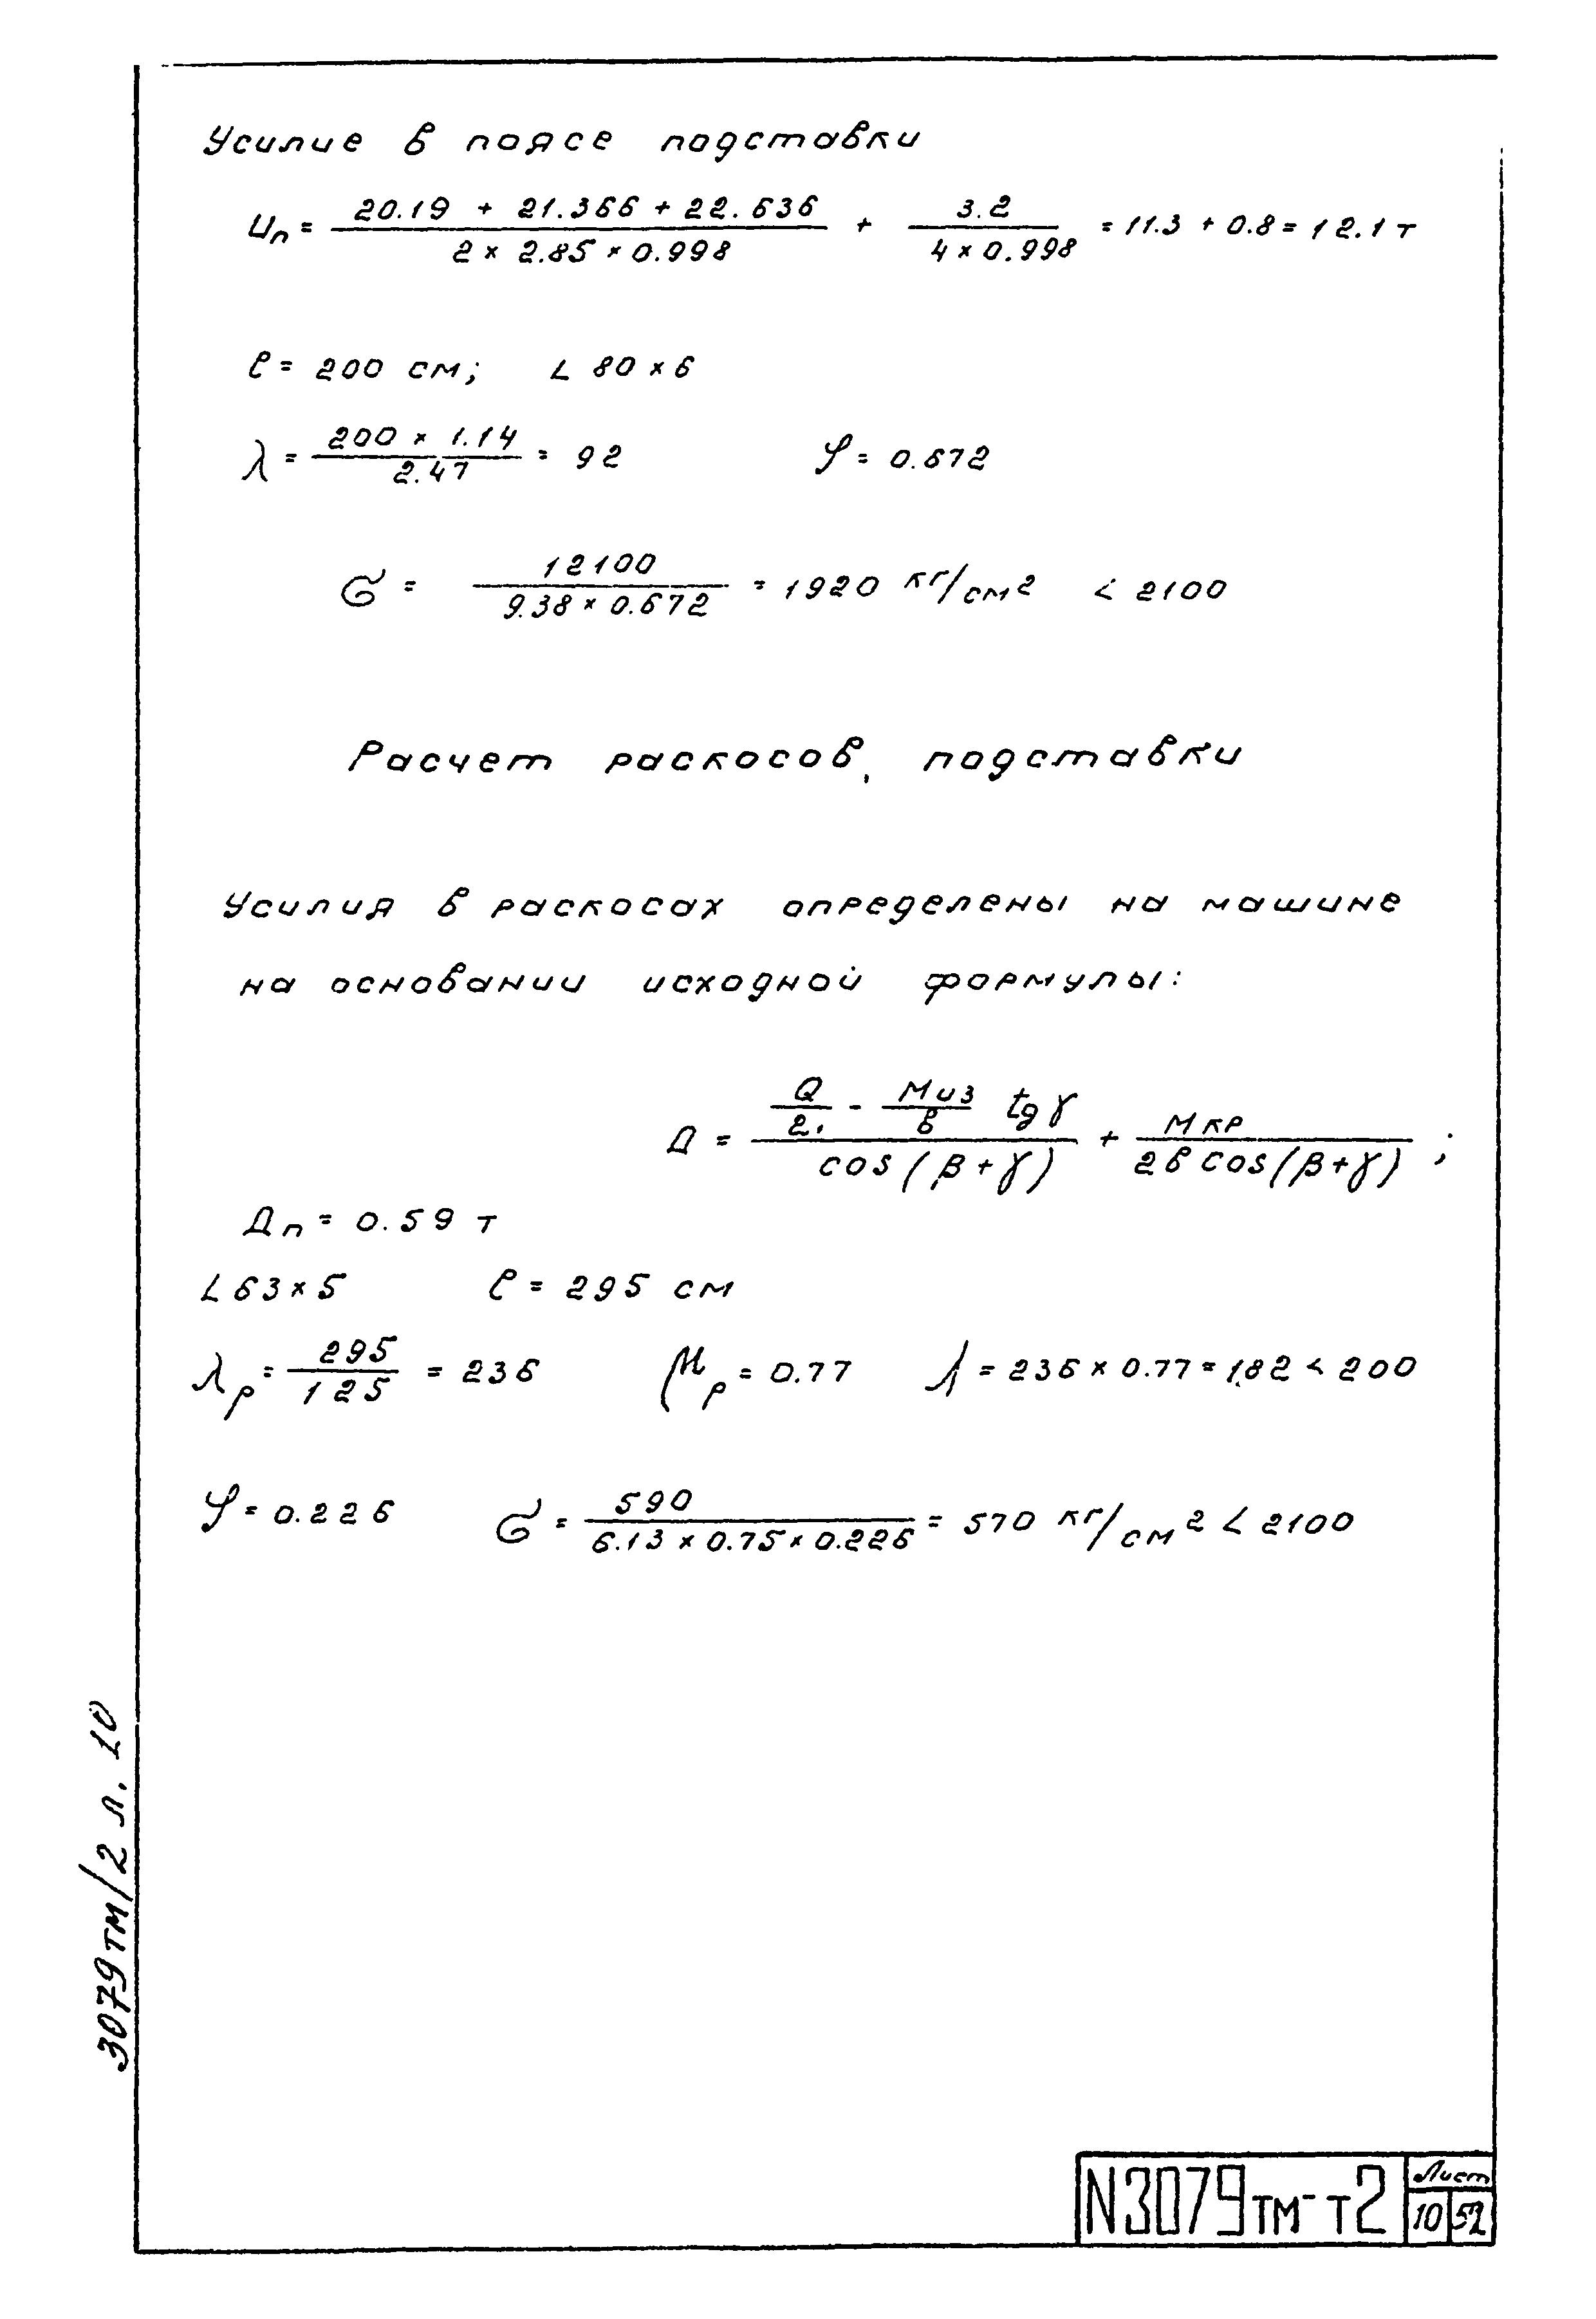 Усилие в поясе подставки
Uп = (20.19 + 21.366 + 22.636) / (2 × 2.85 × 0.998) + 3.2 / (4 × 0.998) = 11.3 + 0.8 = 12.1 т
ℓ = 200 см; L 80 × 6
λ = (200 × 1.14) / 2.47 = 92 φ = 0.672
σ = 12100 / (9.38 × 0.672) = 1920 кг/см2 < 2100
Расчет раскосов, подставки
Усилия в раскосах определены на машине
на основании исходной формулы:
Д = (Q/2 - Mиз/в tg γ) / cos(β+γ) + Mкр / 2в cos(β+γ) ;
Дп = 0.59 т
L 63×5 ℓ = 295 см
λр = 295 / 125 = 236 μр = 0.77 λ = 236 × 0.77 = 182 < 200
φ = 0.226 σ = 590 / (6.13 × 0.75 × 0.226) = 570 кг/см2 < 2100
3079тм/2 л. 10
N3079тм-т2
Лист
10 52